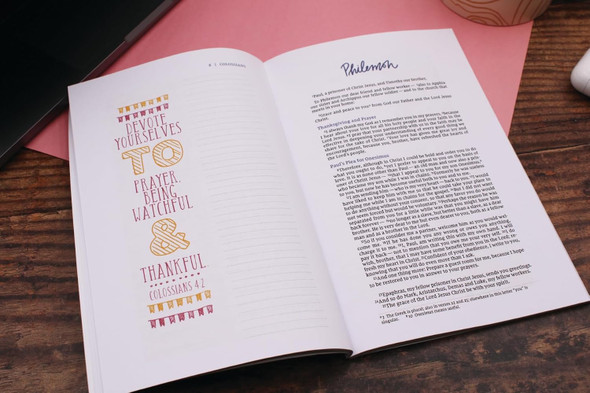 8 | COLOSSIANS
DEVOTE
YOURSELVES
TO
PRAYER,
BEING
WATCHFUL
&
THANKFUL
COLOSSIANS 4:2
Philemon
¹Paul, a prisoner of Christ Jesus, and Timothy our brother,
To Philemon our dear friend and fellow worker — ²also to Apphia
our sister and Archippus our fellow soldier — and to the church that
meets in your home:
³Grace and peace to you from God our Father and the Lord Jesus
Christ.
Thanksgiving and Prayer
⁴I always thank my God as I remember you in my prayers, ⁵because
I hear about your love for all his holy people and your faith in the
Lord Jesus. ⁶I pray that your partnership with us in the faith may be
effective in deepening your understanding of every good thing we
share for the sake of Christ. ⁷Your love has given me great joy and
encouragement, because you, brother, have refreshed the hearts of
the Lord's people.
Paul's Plea for Onesimus
⁸Therefore, although in Christ I could be bold and order you to do
what you ought to do, ⁹yet I prefer to appeal to you on the basis of
love. It is as none other than Paul — an old man and now also a pris-
oner of Christ Jesus — ¹⁰that I appeal to you for my son Onesimus,
who became my son while I was in chains. ¹¹Formerly he was useless
to you, but now he has become useful both to you and to me.
¹²I am sending him — who is my very heart — back to you. ¹³I would
have liked to keep him with me so that he could take your place in
helping me while I am in chains for the gospel. ¹⁴But I did not want
to do anything without your consent, so that any favor you do would
not seem forced but would be voluntary. ¹⁵Perhaps the reason he was
separated from you for a little while was that you might have him
back forever — ¹⁶no longer as a slave, but better than a slave, as a dear
brother. He is very dear to me but even dearer to you, both as a fellow
man and as a brother in the Lord.
¹⁷So if you consider me a partner, welcome him as you would wel-
come me. ¹⁸If he has done you any wrong or owes you anything,
charge it to me. ¹⁹I, Paul, am writing this with my own hand. I will
pay it back — not to mention that you owe me your very self. ²⁰I do
wish, brother, that I may have some benefit from you in the Lord; re-
fresh my heart in Christ. ²¹Confident of your obedience, I write to you,
knowing that you will do even more than I ask.
²²And one thing more: Prepare a guest room for me, because I hope
to be restored to you in answer to your prayers.
²³Epaphras, my fellow prisoner in Christ Jesus, sends you greetings.
²⁴And so do Mark, Aristarchus, Demas and Luke, my fellow workers.
²⁵The grace of the Lord Jesus Christ be with your spirit.
3 The Greek is plural; also in verses 22 and 25; elsewhere in this letter "you" is
singular. 10 Onesimus means useful.